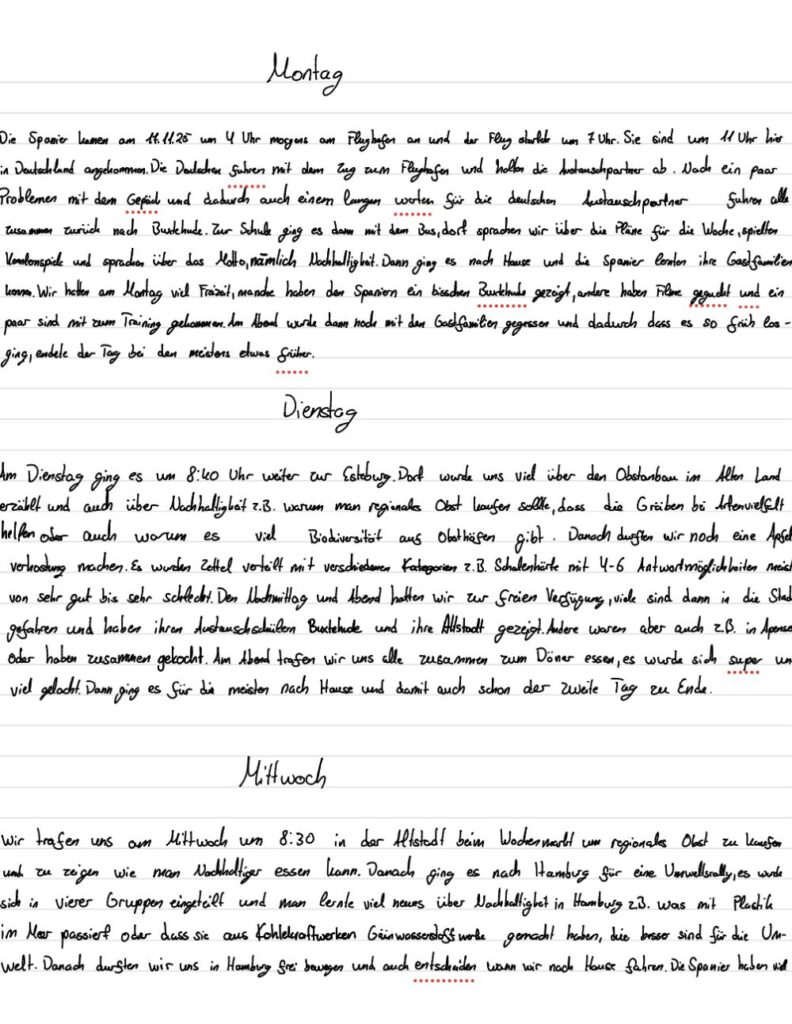 Montag
Die Spanier kamen am 11.11.25 um 4 Uhr morgens am Flughafen an und der Flug startete um 7 Uhr. Sie sind um 11 Uhr hier
in Deutschland angekommen. Die Deutschen fuhren mit dem Zug zum Flughafen und holten die Austauschpartner ab. Nach ein paar
Problemen mit dem Gepäck und dadurch auch einem langen warten für die deutschen Austauschpartner fuhren alle
zusammen zurück nach Buxtehude. Zur Schule ging es dann mit dem Bus, dort sprachen wir über die Pläne für die Woche, spielten
Kennlernspiele und sprachen über das Motto, nämlich Nachhaltigkeit. Dann ging es nach Hause und die Spanier lernten ihre Gastfamilien
kennen. Wir hatten am Montag viel Freizeit, manche haben den Spaniern ein bisschen Buxtehude gezeigt, andere haben Filme geguckt und ein
paar sind mit zum Training gekommen. Am Abend wurde dann noch mit den Gastfamilien gegessen und dadurch dass es so früh los-
ging, endete der Tag bei den meistens etwas früher.
Dienstag
Am Dienstag ging es um 8:40 Uhr weiter zur Esteburg. Dort wurde uns viel über den Obstanbau im Alten Land
erzählt und auch über Nachhaltigkeit z.B. warum man regionales Obst kaufen sollte, dass die Gräben bei Artenvielfalt
helfen oder auch warum es viel Biodiversität aus Obsthöfen gibt. Danach durften wir noch eine Apfel
verkostung machen. Es wurden Zettel verteilt mit verschiedenen Kategorien z.B. Schalenhärte mit 4-6 Antwortmöglichkeiten meist
von sehr gut bis sehr schlecht. Den Nachmittag und Abend hatten wir zur freien Verfügung, viele sind dann in die Stad
gefahren und haben ihren Austauschschülern Buxtehude und ihre Altstadt gezeigt. Andere waren aber auch z.B. in Apensen
oder haben zusammen gekocht. Am Abend trafen wir uns alle zusammen zum Döner essen, es wurde sich super un
viel gelacht. Dann ging es für die meisten nach Hause und damit auch schon der zweite Tag zu Ende.
Mittwoch
Wir trafen uns am Mittwoch um 8:30 in der Altstadt beim Wochenmarkt um regionales Obst zu kaufen
und zu zeigen wie man Nachhaltiger essen kann. Danach ging es nach Hamburg für eine Umweltsrally, es wurde
sich in vierer Gruppen eingeteilt und man lernte viel neues über Nachhaltigkeit in Hamburg z.B. was mit Plastik
im Meer passiert oder dass sie aus Kohlekraftwerken gemacht haben, die besser sind für die Um-
welt. Danach durften wir uns in Hamburg frei bewegen und auch entscheiden wann wir nach Hause fahren. Die Spanier haben viel